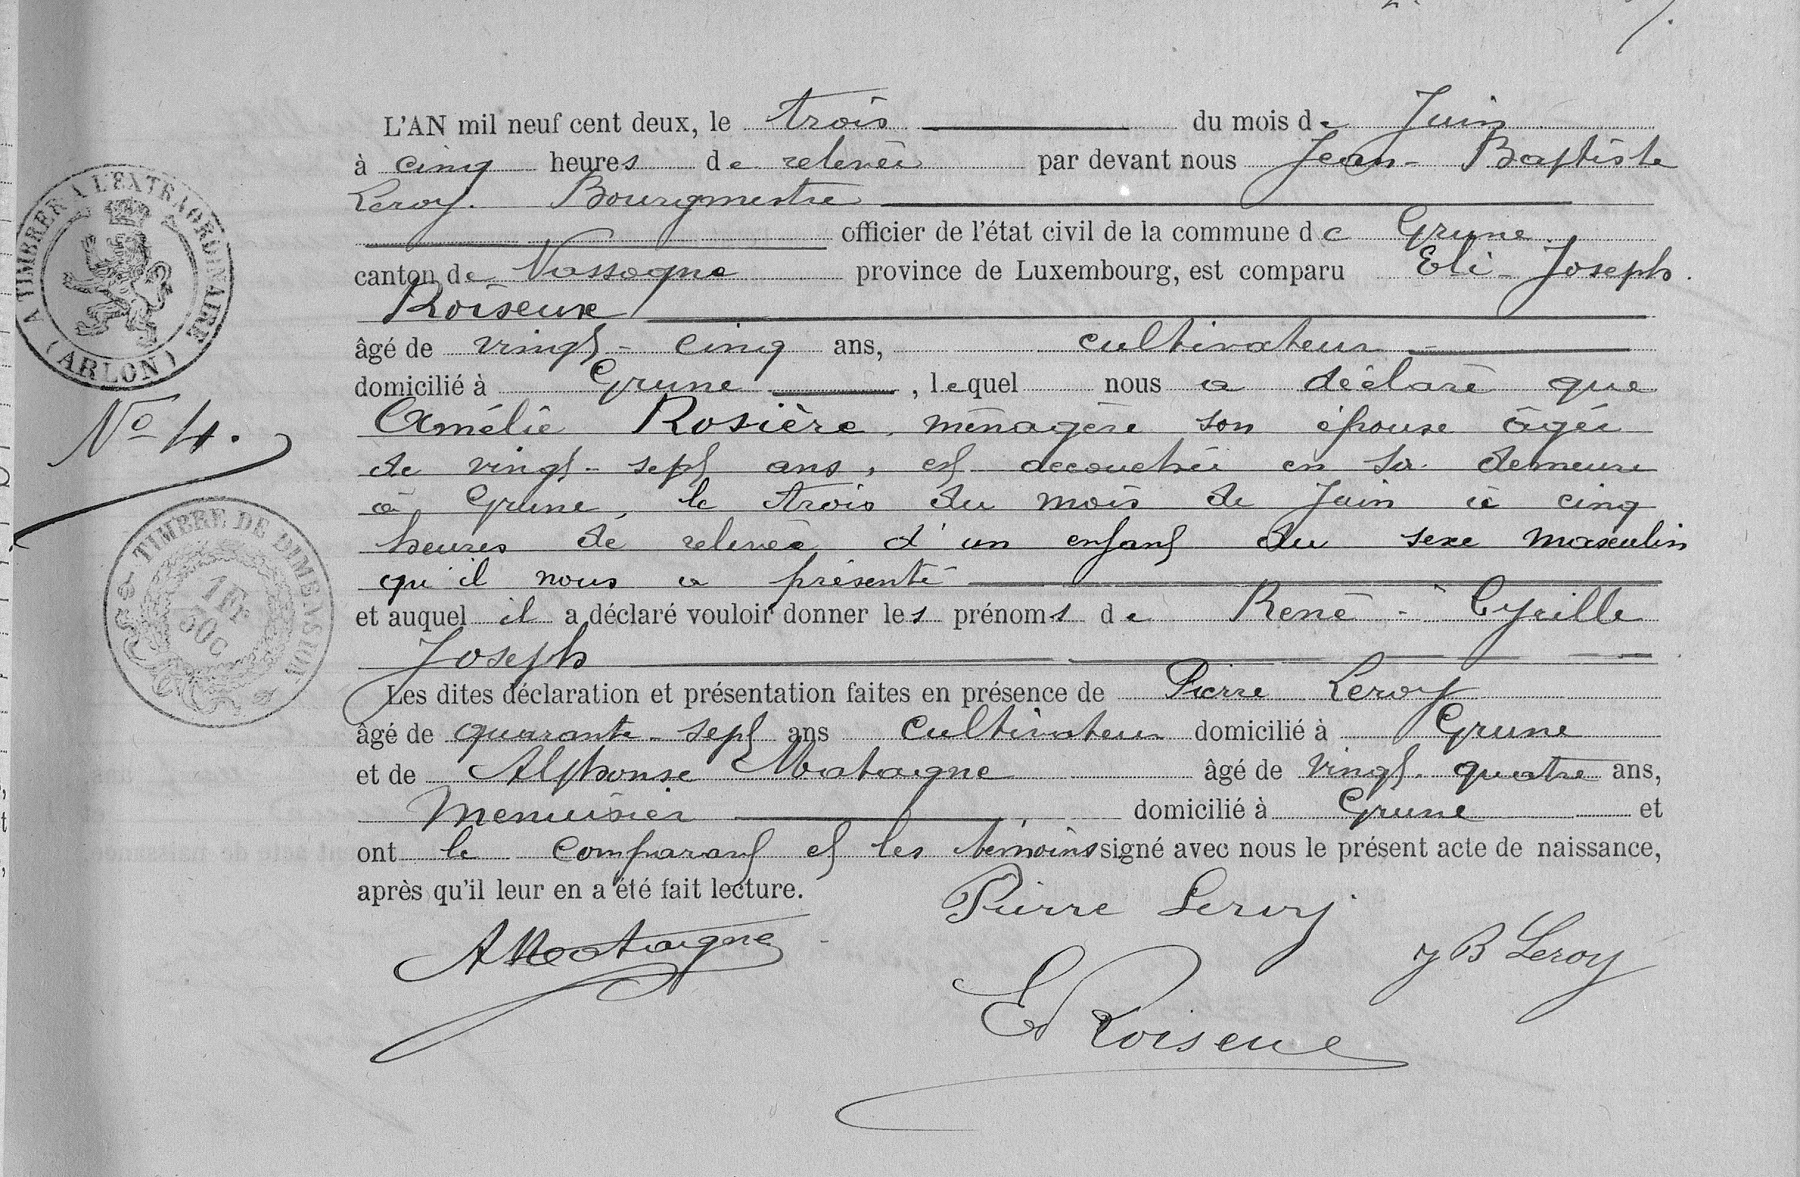 L'AN mil neuf cent deux, le trois du mois de Juin
à cinq heures de relevée par devant nous Jean-Baptiste
Leroy. Bourgmestre
officier de l'état civil de la commune de Grune
canton de Nassogne province de Luxembourg, est comparu Eli-Joseph
Roiseux
âgé de vingt-cinq ans, cultivateur
domicilié à Grune, lequel nous a déclaré que
Amélie Rosière, ménagère son épouse âgée
de vingt-sept ans, est accouchée en sa demeure
à Grune, le trois du mois de Juin à cinq
heures de relevée d'un enfant du sexe masculin
qu'il nous a présenté
et auquel il a déclaré vouloir donner les prénoms de René-Cyrille
Joseph
Les dites déclaration et présentation faites en présence de Pierre Leroy
âgé de quarante-sept ans cultivateur domicilié à Grune
et de Alphonse Mataigne âgé de vingt-quatre ans,
Menuisier domicilié à Grune et
ont le comparant et les témoins signé avec nous le présent acte de naissance,
après qu'il leur en a été fait lecture.
Pierre Leroy
A Mataigne
J B Leroy
E Roiseux
A TIMBRER A L'EXTRAORDINAIRE
(ARLON)
No 4.
TIMBRE DE DIMENSION
1 Fr
50c